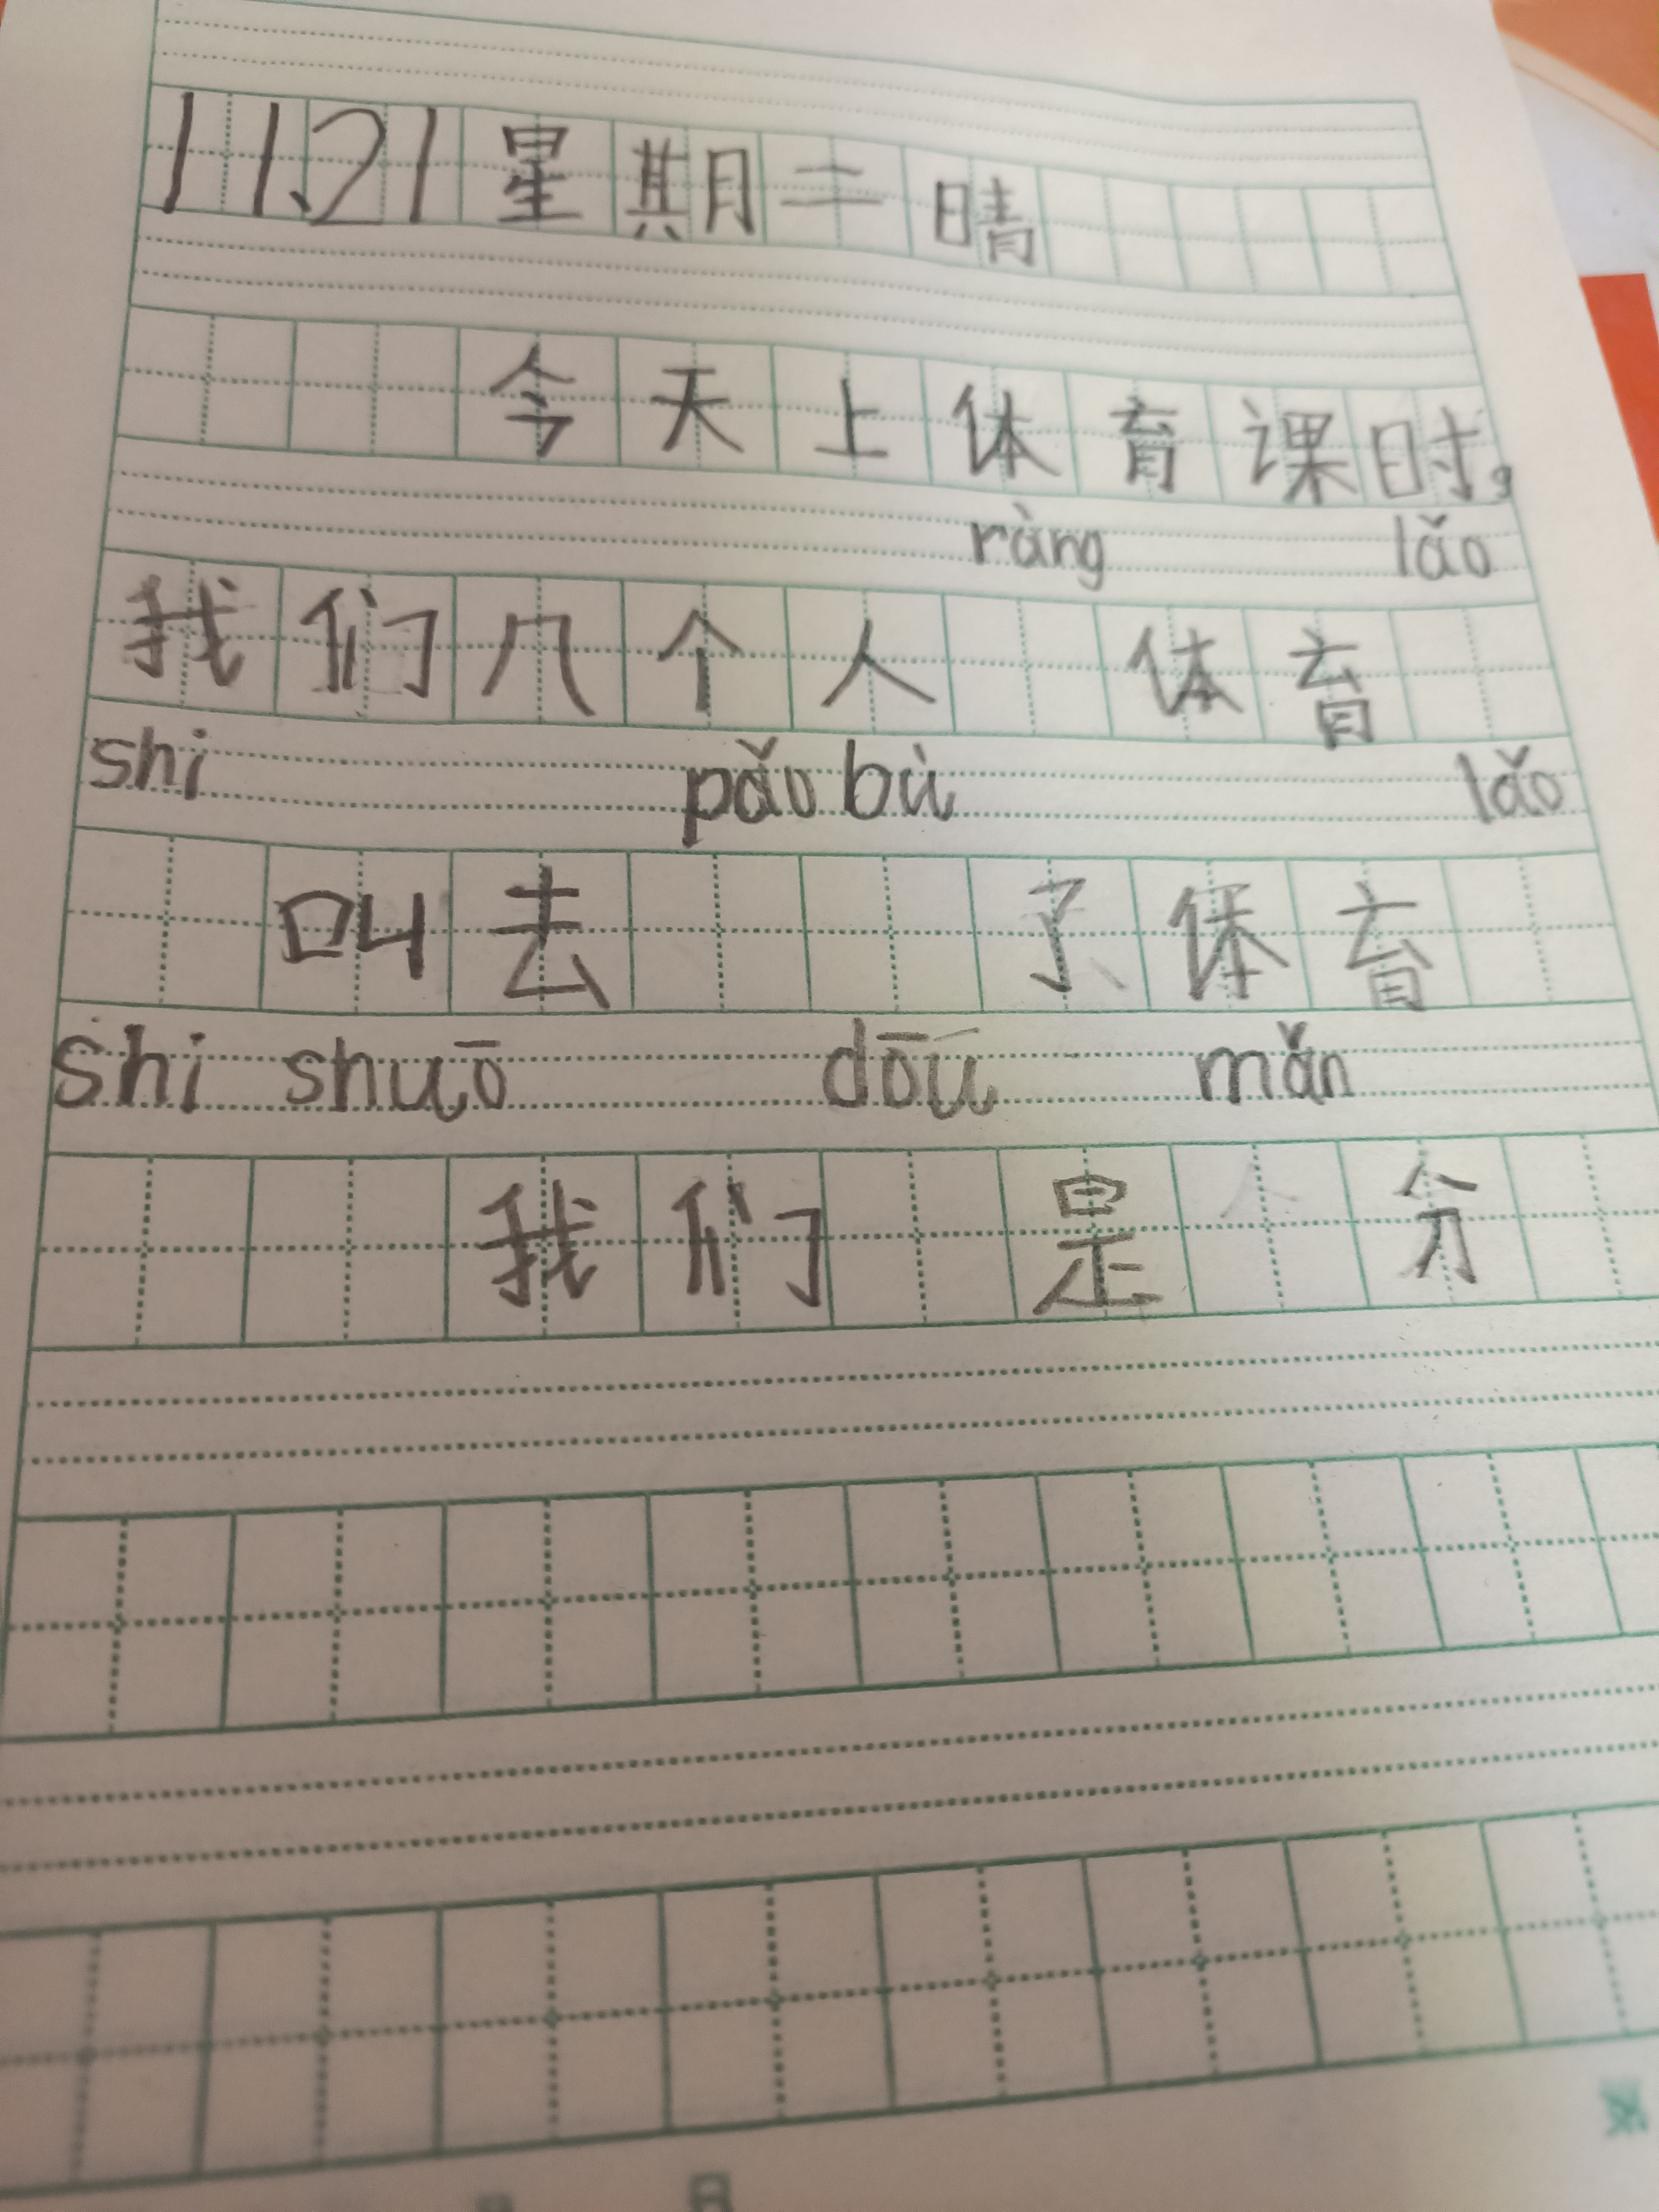 11.21星期二晴
今天上体育课时，
ràng lǎo
我们几个人 体育
shi pǎo bù lǎo
叫去 了体育
shi shuō dōu mǎn
我们 是 分
日